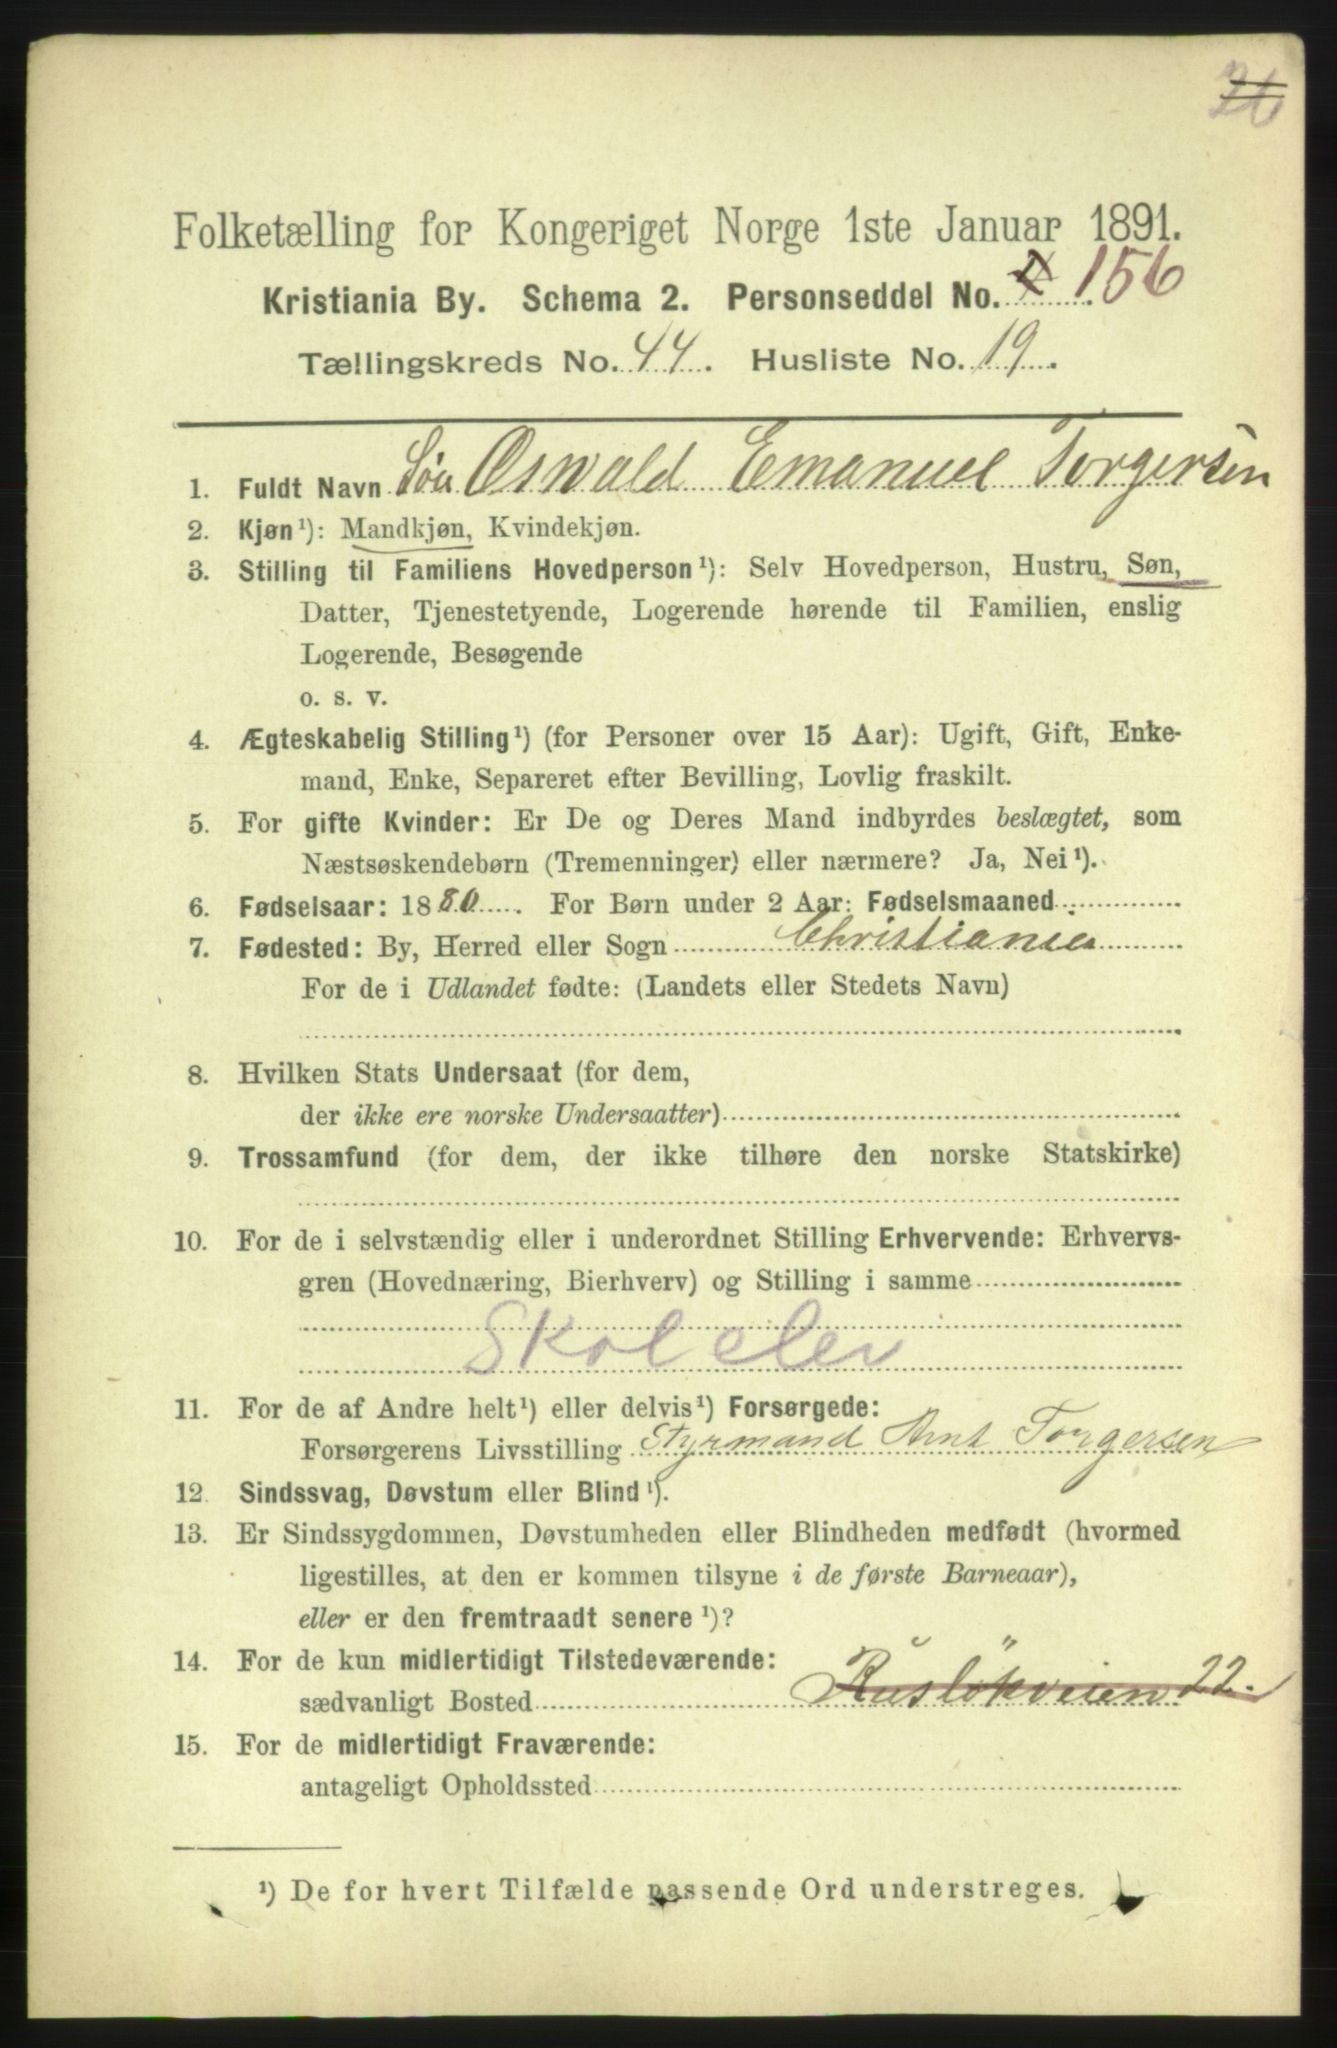 Folketælling for Kongeriget Norge 1ste Januar 1891.
Kristiania By. Schema 2. Personseddel No. 156
Tællingskreds No. 44. Husliste No. 19.
1. Fuldt Navn Søn Oswald Emanuel Torgersen
2. Kjøn¹): Mandkjøn, Kvindekjøn.
3. Stilling til Familiens Hovedperson¹): Selv Hovedperson, Hustru, Søn,
Datter, Tjenestetyende, Logerende hørende til Familien, enslig
Logerende, Besøgende
o. s. v.
4. Ægteskabelig Stilling¹) (for Personer over 15 Aar): Ugift, Gift, Enke-
mand, Enke, Separeret efter Bevilling, Lovlig fraskilt.
5. For gifte Kvinder: Er De og Deres Mand indbyrdes beslægtet, som
Næstsøskendebørn (Tremenninger) eller nærmere? Ja, Nei¹).
6. Fødselsaar: 1880. For Børn under 2 Aar: Fødselsmaaned
7. Fødested: By, Herred eller Sogn Christiania
For de i Udlandet fødte: (Landets eller Stedets Navn)
8. Hvilken Stats Undersaat (for dem,
der ikke ere norske Undersaatter)
9. Trossamfund (for dem, der ikke tilhøre den norske Statskirke)
10. For de i selvstændig eller i underordnet Stilling Erhvervende: Erhvervs-
gren (Hovednæring, Bierhverv) og Stilling i samme
Skolelev
11. For de af Andre helt¹) eller delvis¹) Forsørgede:
Forsørgerens Livsstilling Styrmand Arnt Torgersen
12. Sindssvag, Døvstum eller Blind¹).
13. Er Sindssygdommen, Døvstumheden eller Blindheden medfødt (hvormed
ligestilles, at den er kommen tilsyne i de første Barneaar),
eller er den fremtraadt senere¹)?
14. For de kun midlertidigt Tilstedeværende:
sædvanligt Bosted Rusløkveien 22.
15. For de midlertidigt Fraværende:
antageligt Opholdssted
¹) De for hvert Tilfælde passende Ord understreges.